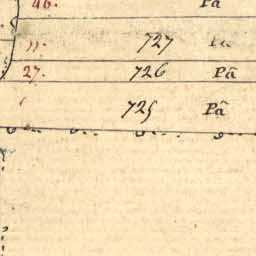 46. Pâ
11. 727 Pâ
27. 726 Pâ
725 Pâ